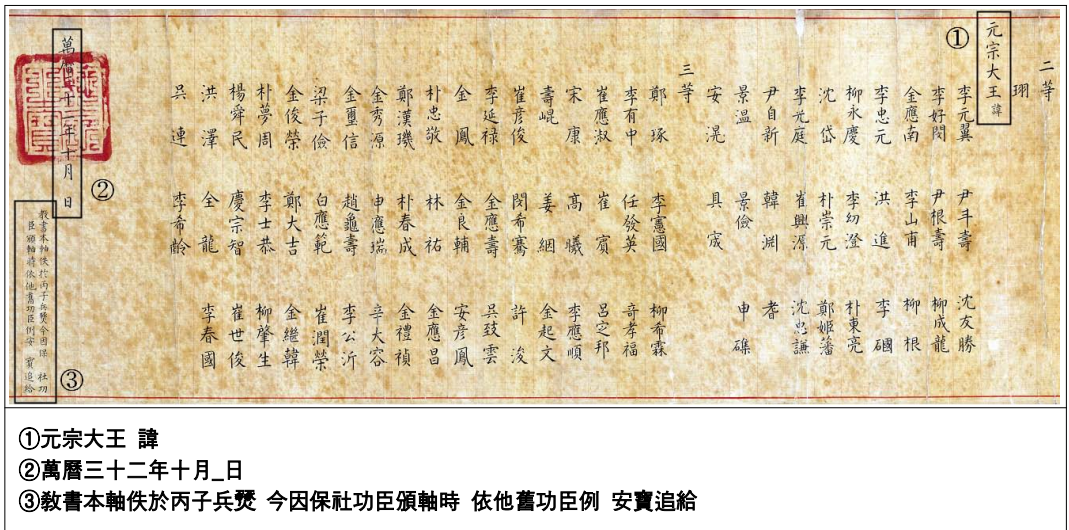 二等
珝
① 元宗大王 諱
李元翼 尹斗壽 沈友勝
李好閔 尹根壽 柳成龍
金應南 李山甫 柳根
李忠元 洪進 李碅
柳永慶 李幼澄 朴東亮
沈岱 朴崇元 鄭姬藩
李光庭 崔興源 沈忠謙
尹自新 韓淵 耆
景溫 景儉 申磼
安滉 具宬
三等
鄭琢 李憲國 柳希霖
李有中 任發英 奇孝福
崔應淑 崔賓 呂之邦
宋康 高曦 李應順
壽崐 姜絪 金起文
崔彥俊 閔希騫 許浚
李延祿 金應壽 吳致雲
金鳳 金良輔 安彥鳳
朴忠敬 林祐 金應昌
鄭漢璣 朴春成 金禮禎
金秀源 申應瑞 辛大容
金璽信 趙龜壽 李公沂
梁子儉 白應範 崔潤榮
金俊榮 鄭大吉 金繼韓
朴夢周 李士恭 柳肇生
楊舜民 慶宗智 崔世俊
洪澤 全龍 李春國
吳連 李希齡
萬曆三十二年十月 日
②
敎書本軸佚於丙子兵燹今因保 社功
臣頒軸時依他舊功臣例安 寶追給
③
①元宗大王 諱
②萬曆三十二年十月_日
③敎書本軸佚於丙子兵燹 今因保社功臣頒軸時 依他舊功臣例 安寶追給